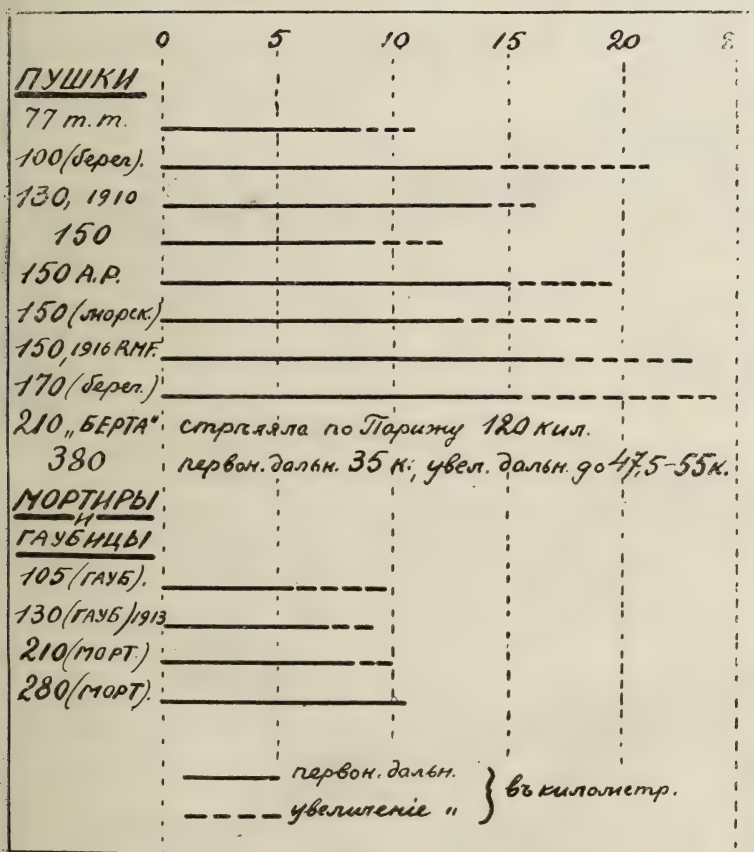 0 5 10 15 20
ПУШКИ
77 m.m.
100 (берег).
130, 1910
150
150 А.Р.
150 (морск.)
150, 1916 RMF.
170 (берег.)
210 „БЕРТА" стрѣляла по Парижу 120 кил.
380 первон. дальн. 35 к.; увел. дальн. до 47,5-55 к.
МОРТИРЫ
И
ГАУБИЦЫ
105 (ГАУБ).
130 (ГАУБ) 1913
210 (МОРТ.)
280 (МОРТ).
первон. дальн.
увеличенiе " } въ километр.